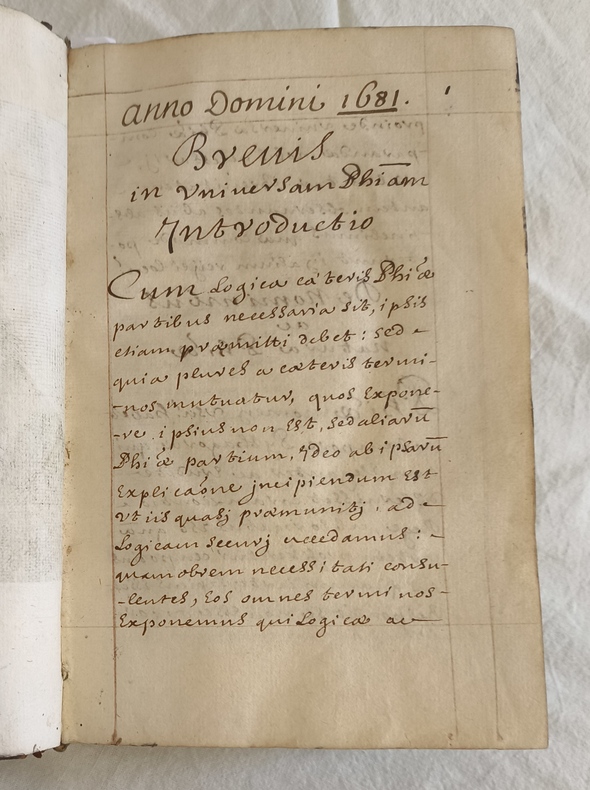 anno Domini 1681.
Brevis
in vniversam Phiam
Introductio
Cum Logica cæteris Phiæ
partibus necessaria sit, ipsis
etiam præmitti debet: sed
quia plures a cæteris termi-
-nos mutuatur, quos Expone-
-re ipsius non Est, sed aliarū
Phiæ partium, Ideo ab ipsarū
Explicaone incipiendum Est
vt iis quasj præmunitj, ad
Logicam securj accedamus:
quamobrem necessitati consu-
-lentes, Eos omnes terminos
Exponemus qui Logicæ ac